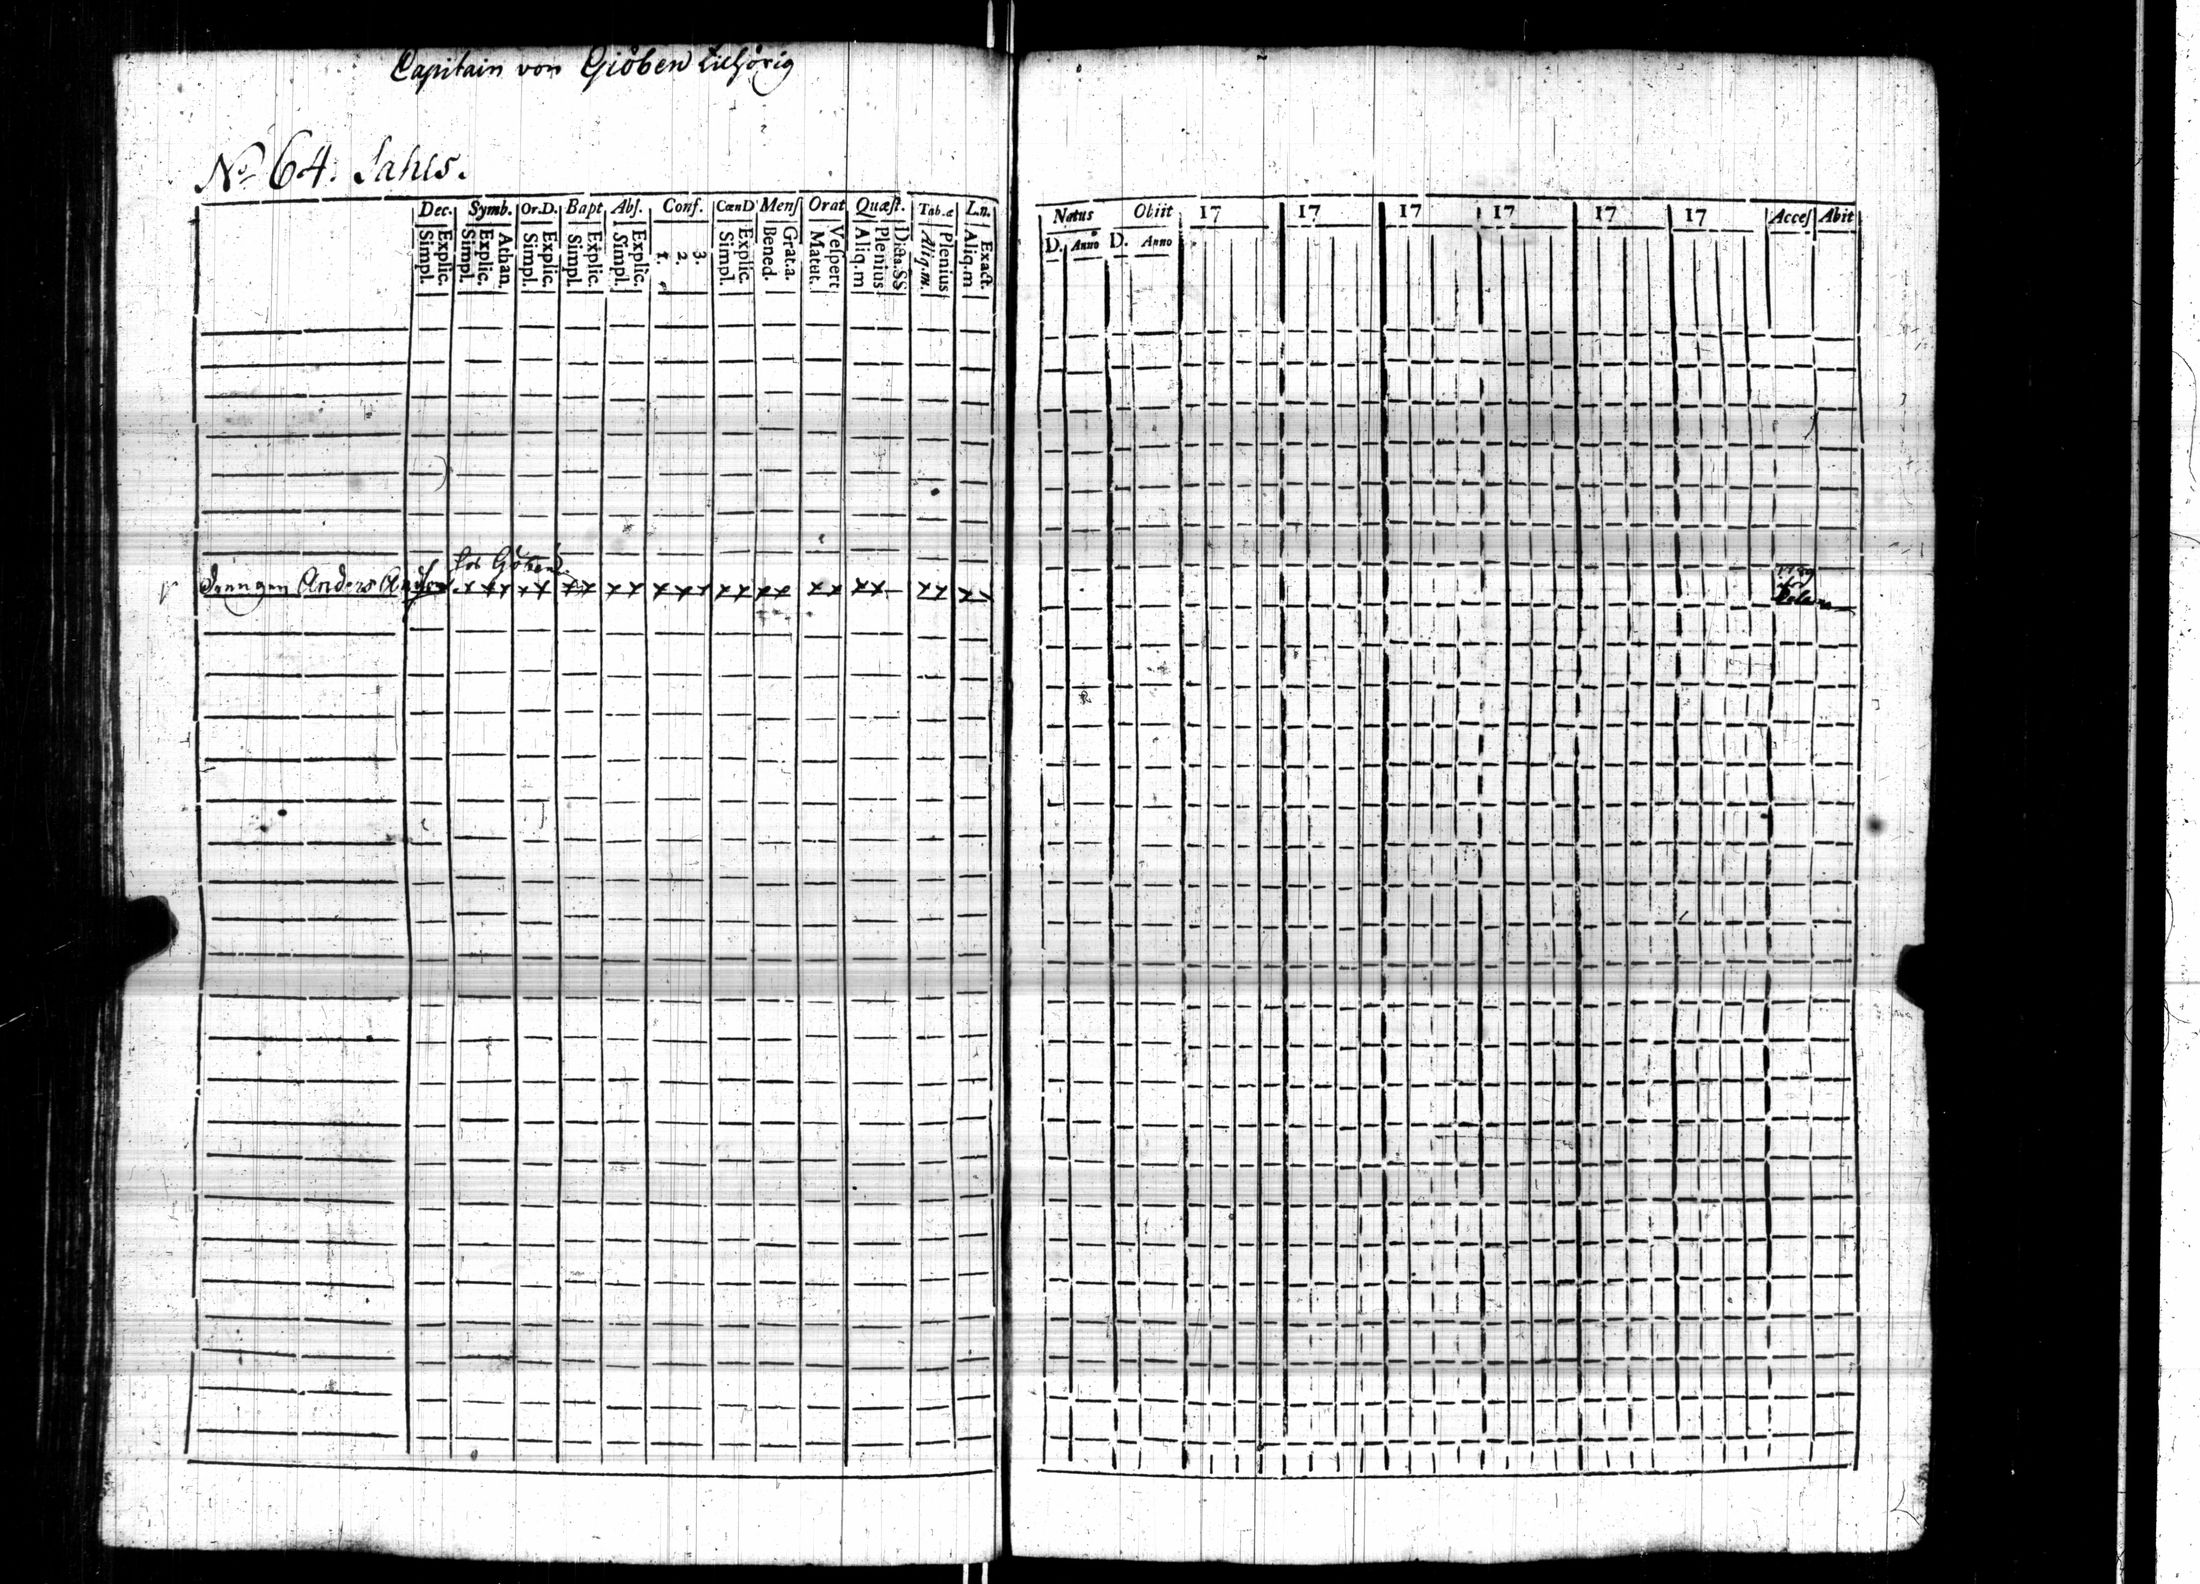 Capitain von Giöben tilhörig
No 64. Sahls.
Dec. Symb. Or.D. Bapt Abs. Conf. CœnD Mens Orat Quæst. Tab.æ L.n.
Explic. Simpl. Athan. Explic. Simpl. Explic. Simpl. Explic. Simpl. Explic. Simpl. 3. 2. 1. Explic. Simpl. Grat.a. Bened. Vespert Matut. Dicta.SS Plenius Aliq.m Plenius Aliq.m. Exact. Aliq.m
Natus Obiit 17 17 17 17 17 17 Acces Abit
D. Anno D. Anno
hos Göben
Drängen Anders